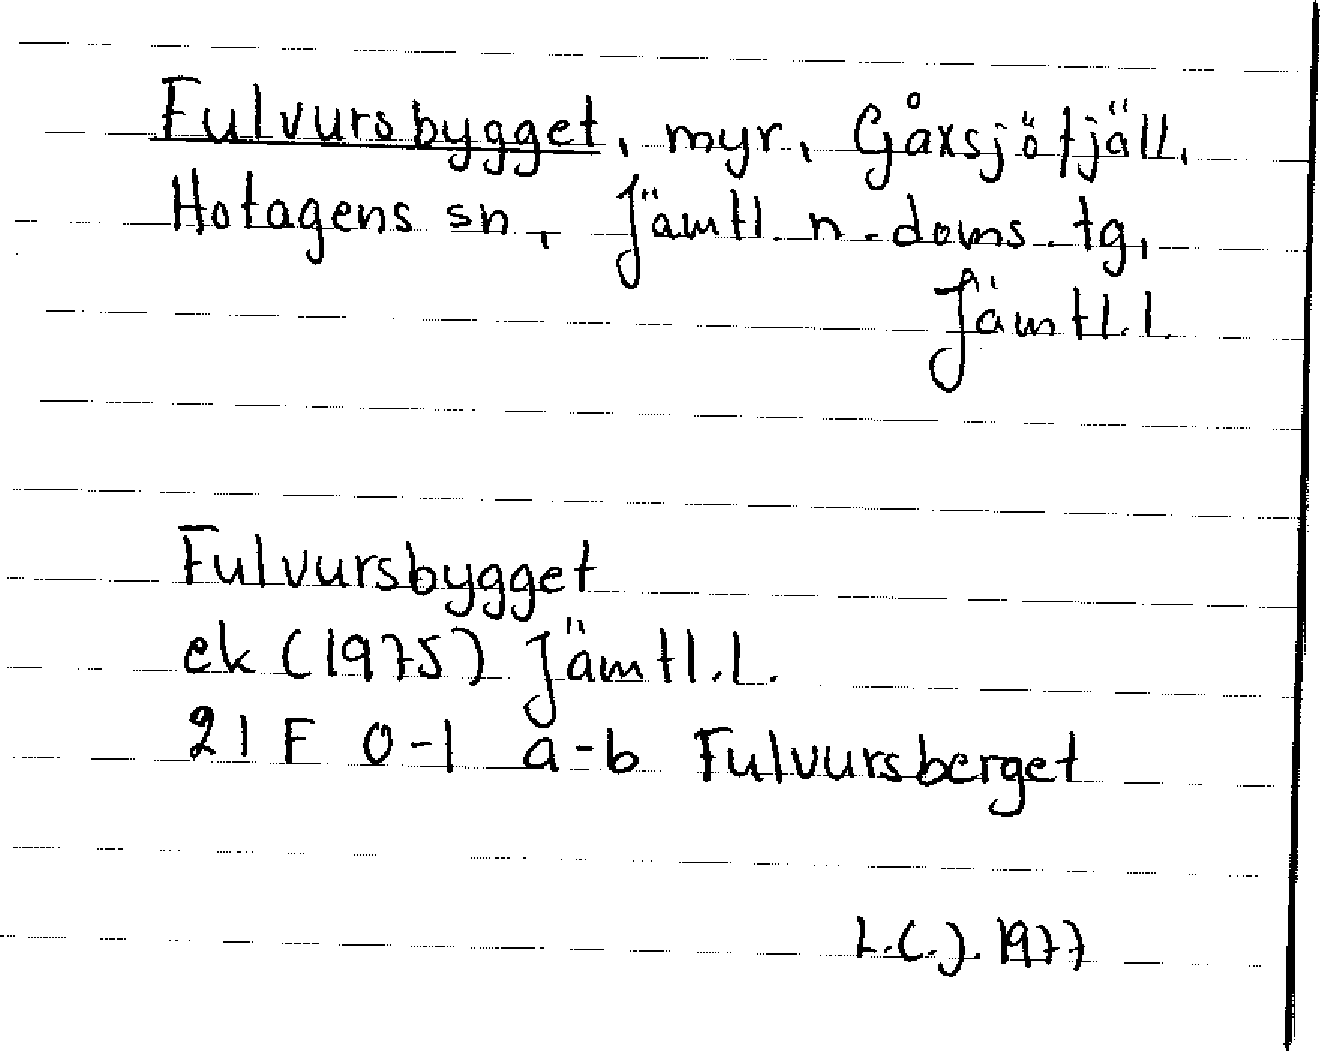 Fulvursbygget, myr, Gåxsjöfjäll,
Hotagens sn, Jämtl. n. doms. tg,
Jämtl.l.
Fulvursbygget
ek (1975) Jämtl.l.
21 F 0-1 a-b Fulvursberget
L.C.J. 1977